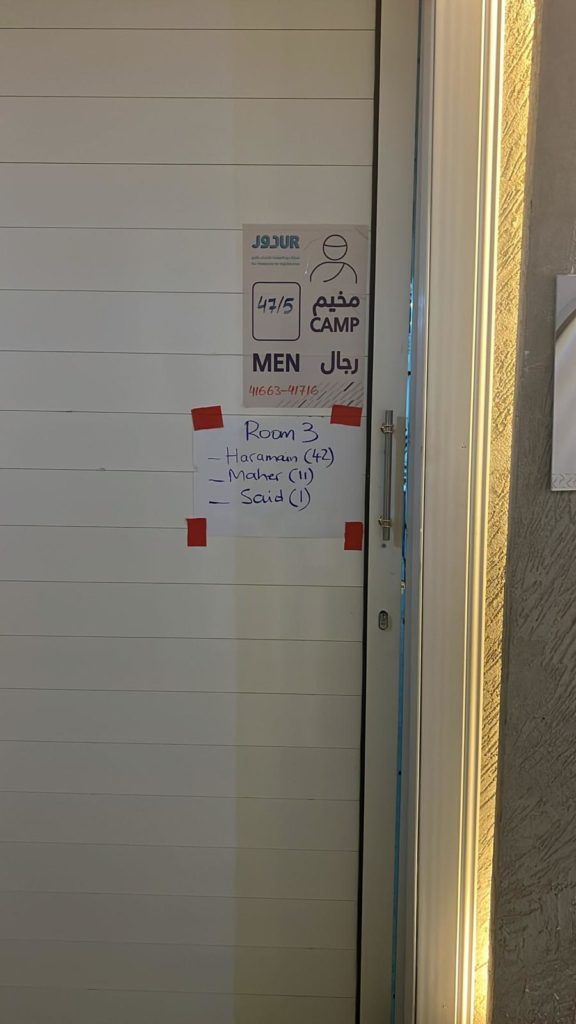 دور DUR
47/5
مخيم
CAMP
MEN رجال
41663-41716
Room 3
- Haramain (42)
- Maher (11)
- Said (1)